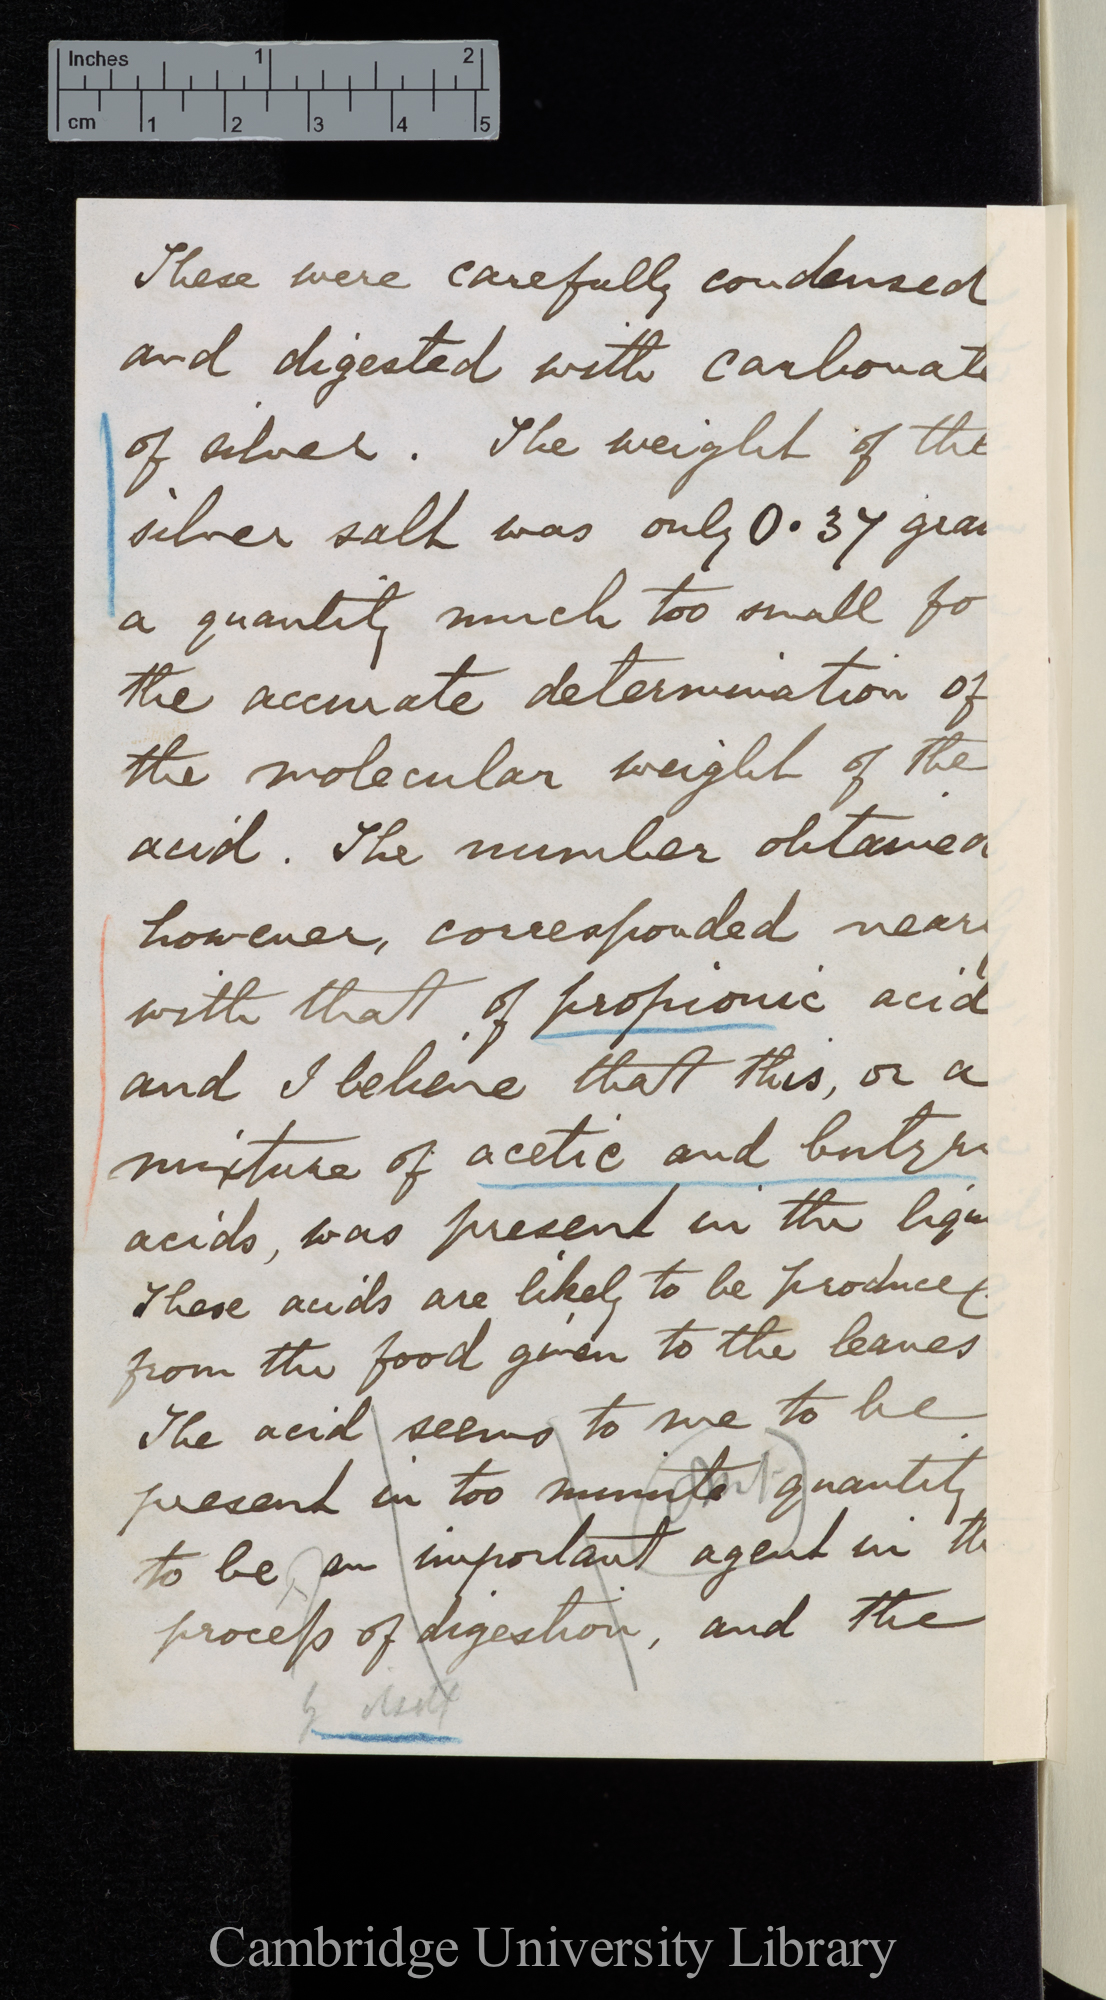 Inches 1 2
cm 1 2 3 4 5
These were carefully condensed
and digested with carbonate
of silver. The weight of the
silver salt was only 0.37 gram
a quantity much too small fo
the accurate determination of
the molecular weight of the
acid. The number obtained
however, corresponded near
with that of propionic acid
and I believe that this, or a
mixture of acetic and butyri
acids, was present in the liqu
These acids are likely to be produced
from the food given to the leaves
The acid seems to me to be
present in too minute quantity
to be an important agent in th
process of digestion, and the
by itself
Cambridge University Library